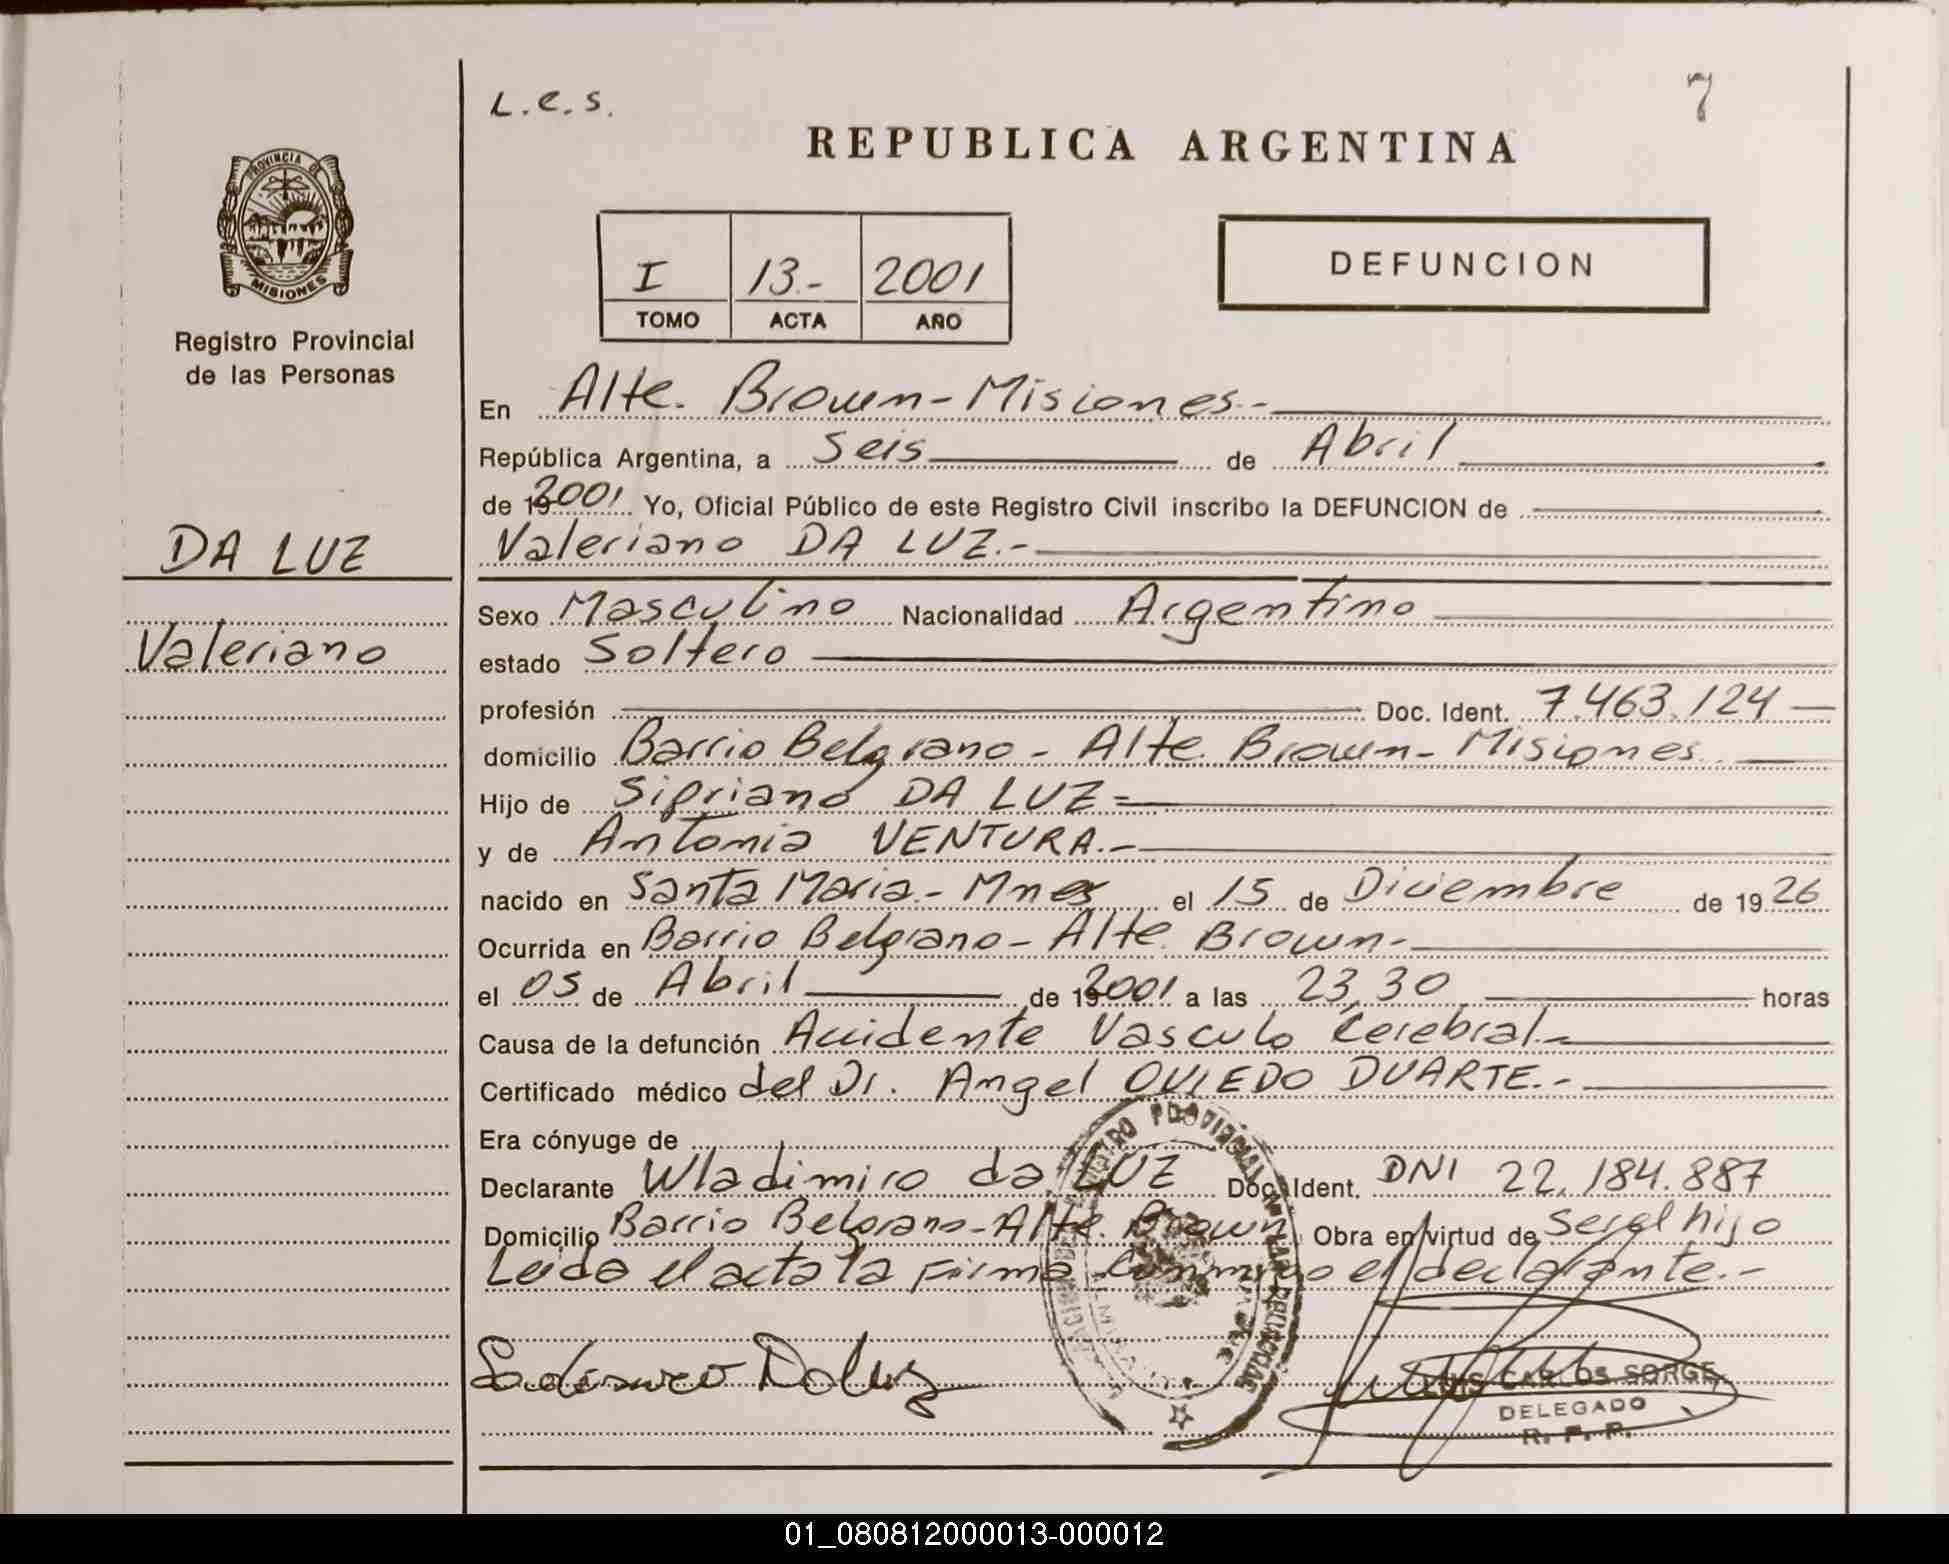 L.C.S.
7
REPUBLICA ARGENTINA
PROVINCIA DE
MISIONES
Registro Provincial
de las Personas
I 13.- 2001
TOMO ACTA AÑO
DEFUNCION
En Alte. Brown - Misiones.-
República Argentina, a Seis de Abril
de 2001 Yo, Oficial Público de este Registro Civil inscribo la DEFUNCION de
DA LUZ
Valeriano DA LUZ.-
Sexo Masculino Nacionalidad Argentino
Valeriano
estado Soltero
profesión Doc. Ident. 7.463.124
domicilio Barrio Belgrano - Alte. Brown - Misiones
Hijo de Sipriano DA LUZ=
y de Antonia VENTURA.-
nacido en Santa Maria - Mnes el 15 de Diciembre de 1926
Ocurrida en Barrio Belgrano - Alte. Brown-
el 05 de Abril de 2001 a las 23,30 horas
Causa de la defunción Accidente Vasculo Cerebral.-
Certificado médico del Dr. Angel OVIEDO DUARTE.-
Era cónyuge de
Declarante Wladimiro da LUZ Doc. Ident. DNI 22.184.887
Domicilio Barrio Belgrano - Alte. Brown Obra en virtud de ser el hijo
Leida el acta la firma conmigo el declarante.-
LUIS CARLOS SORGE
DELEGADO
R. P. P.
01_080812000013-000012